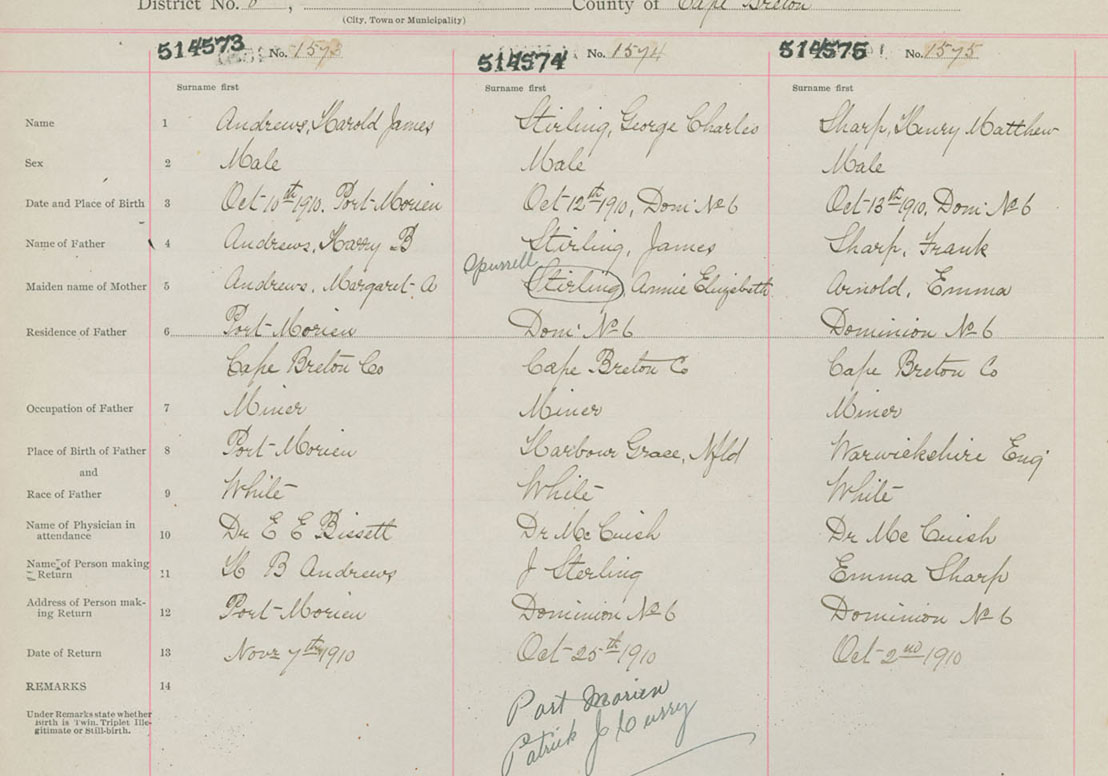 District No. 8, County of Cape Breton
(City, Town or Municipality)
514573 No. 1573 514574 No. 1574 514575 No. 1575
Surname first Surname first Surname first
Name 1 Andrews, Harold James Stirling, George Charles Sharp, Henry Matthew
Sex 2 Male Male Male
Date and Place of Birth 3 Oct 10th 1910. Port Morien Oct 12th 1910, Dom No 6 Oct 13th 1910. Dom No 6
Name of Father 4 Andrews, Harry B Stirling, James Sharp, Frank
Spurrell
Maiden name of Mother 5 Andrews, Margaret A Stirling, Annie Elizabeth Arnold, Emma
Residence of Father 6 Port Morien Dom No 6 Dominion No 6
Cape Breton Co Cape Breton Co Cape Breton Co
Occupation of Father 7 Miner Miner Miner
Place of Birth of Father 8 Port Morien Harbour Grace, Nfld Warwickshire Eng
and
Race of Father 9 White White White
Name of Physician in
attendance 10 Dr E E Bissett Dr McCuish Dr McCuish
Name of Person making
Return 11 H B Andrews J Sterling Emma Sharp
Address of Person mak-
ing Return 12 Port Morien Dominion No 6 Dominion No 6
Date of Return 13 Novr 7th 1910 Oct 25th 1910 Oct 2nd 1910
REMARKS 14
Under Remarks state whether
Birth is Twin, Triplet Ille-
gitimate or Still-birth.
Port Morien
Patrick J Curry